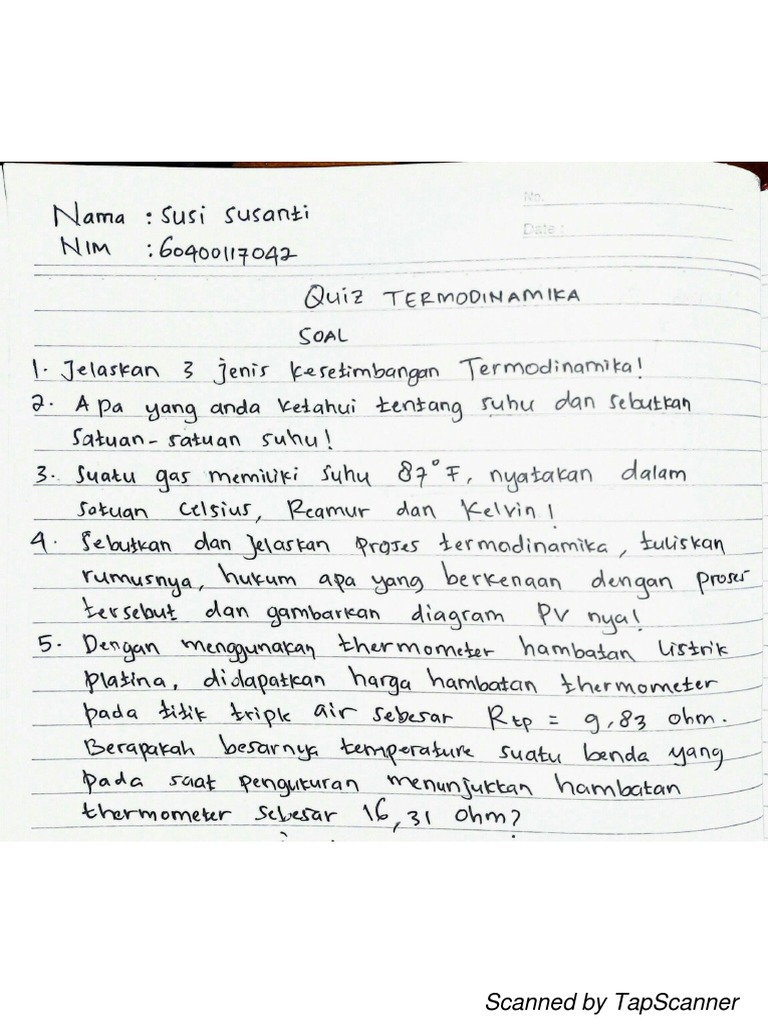 No.
Date :
Nama : Susi Susanti
NIM : 60400117042
Quiz TERMODINAMIKA
SOAL
1. Jelaskan 3 jenis kesetimbangan Termodinamika!
2. Apa yang anda ketahui tentang suhu dan sebutkan
satuan-satuan suhu!
3. Suatu gas memiliki suhu 87°F, nyatakan dalam
satuan Celsius, Reamur dan Kelvin!
4. Sebutkan dan jelaskan proses termodinamika, tuliskan
rumusnya, hukum apa yang berkenaan dengan proses
tersebut dan gambarkan diagram PV nya!
5. Dengan menggunakan thermometer hambatan listrik
platina, didapatkan harga hambatan thermometer
pada titik triple air sebesar Rtp = 9,83 ohm.
Berapakah besarnya temperature suatu benda yang
pada saat pengukuran menunjukkan hambatan
thermometer sebesar 16,31 ohm?
Scanned by TapScanner